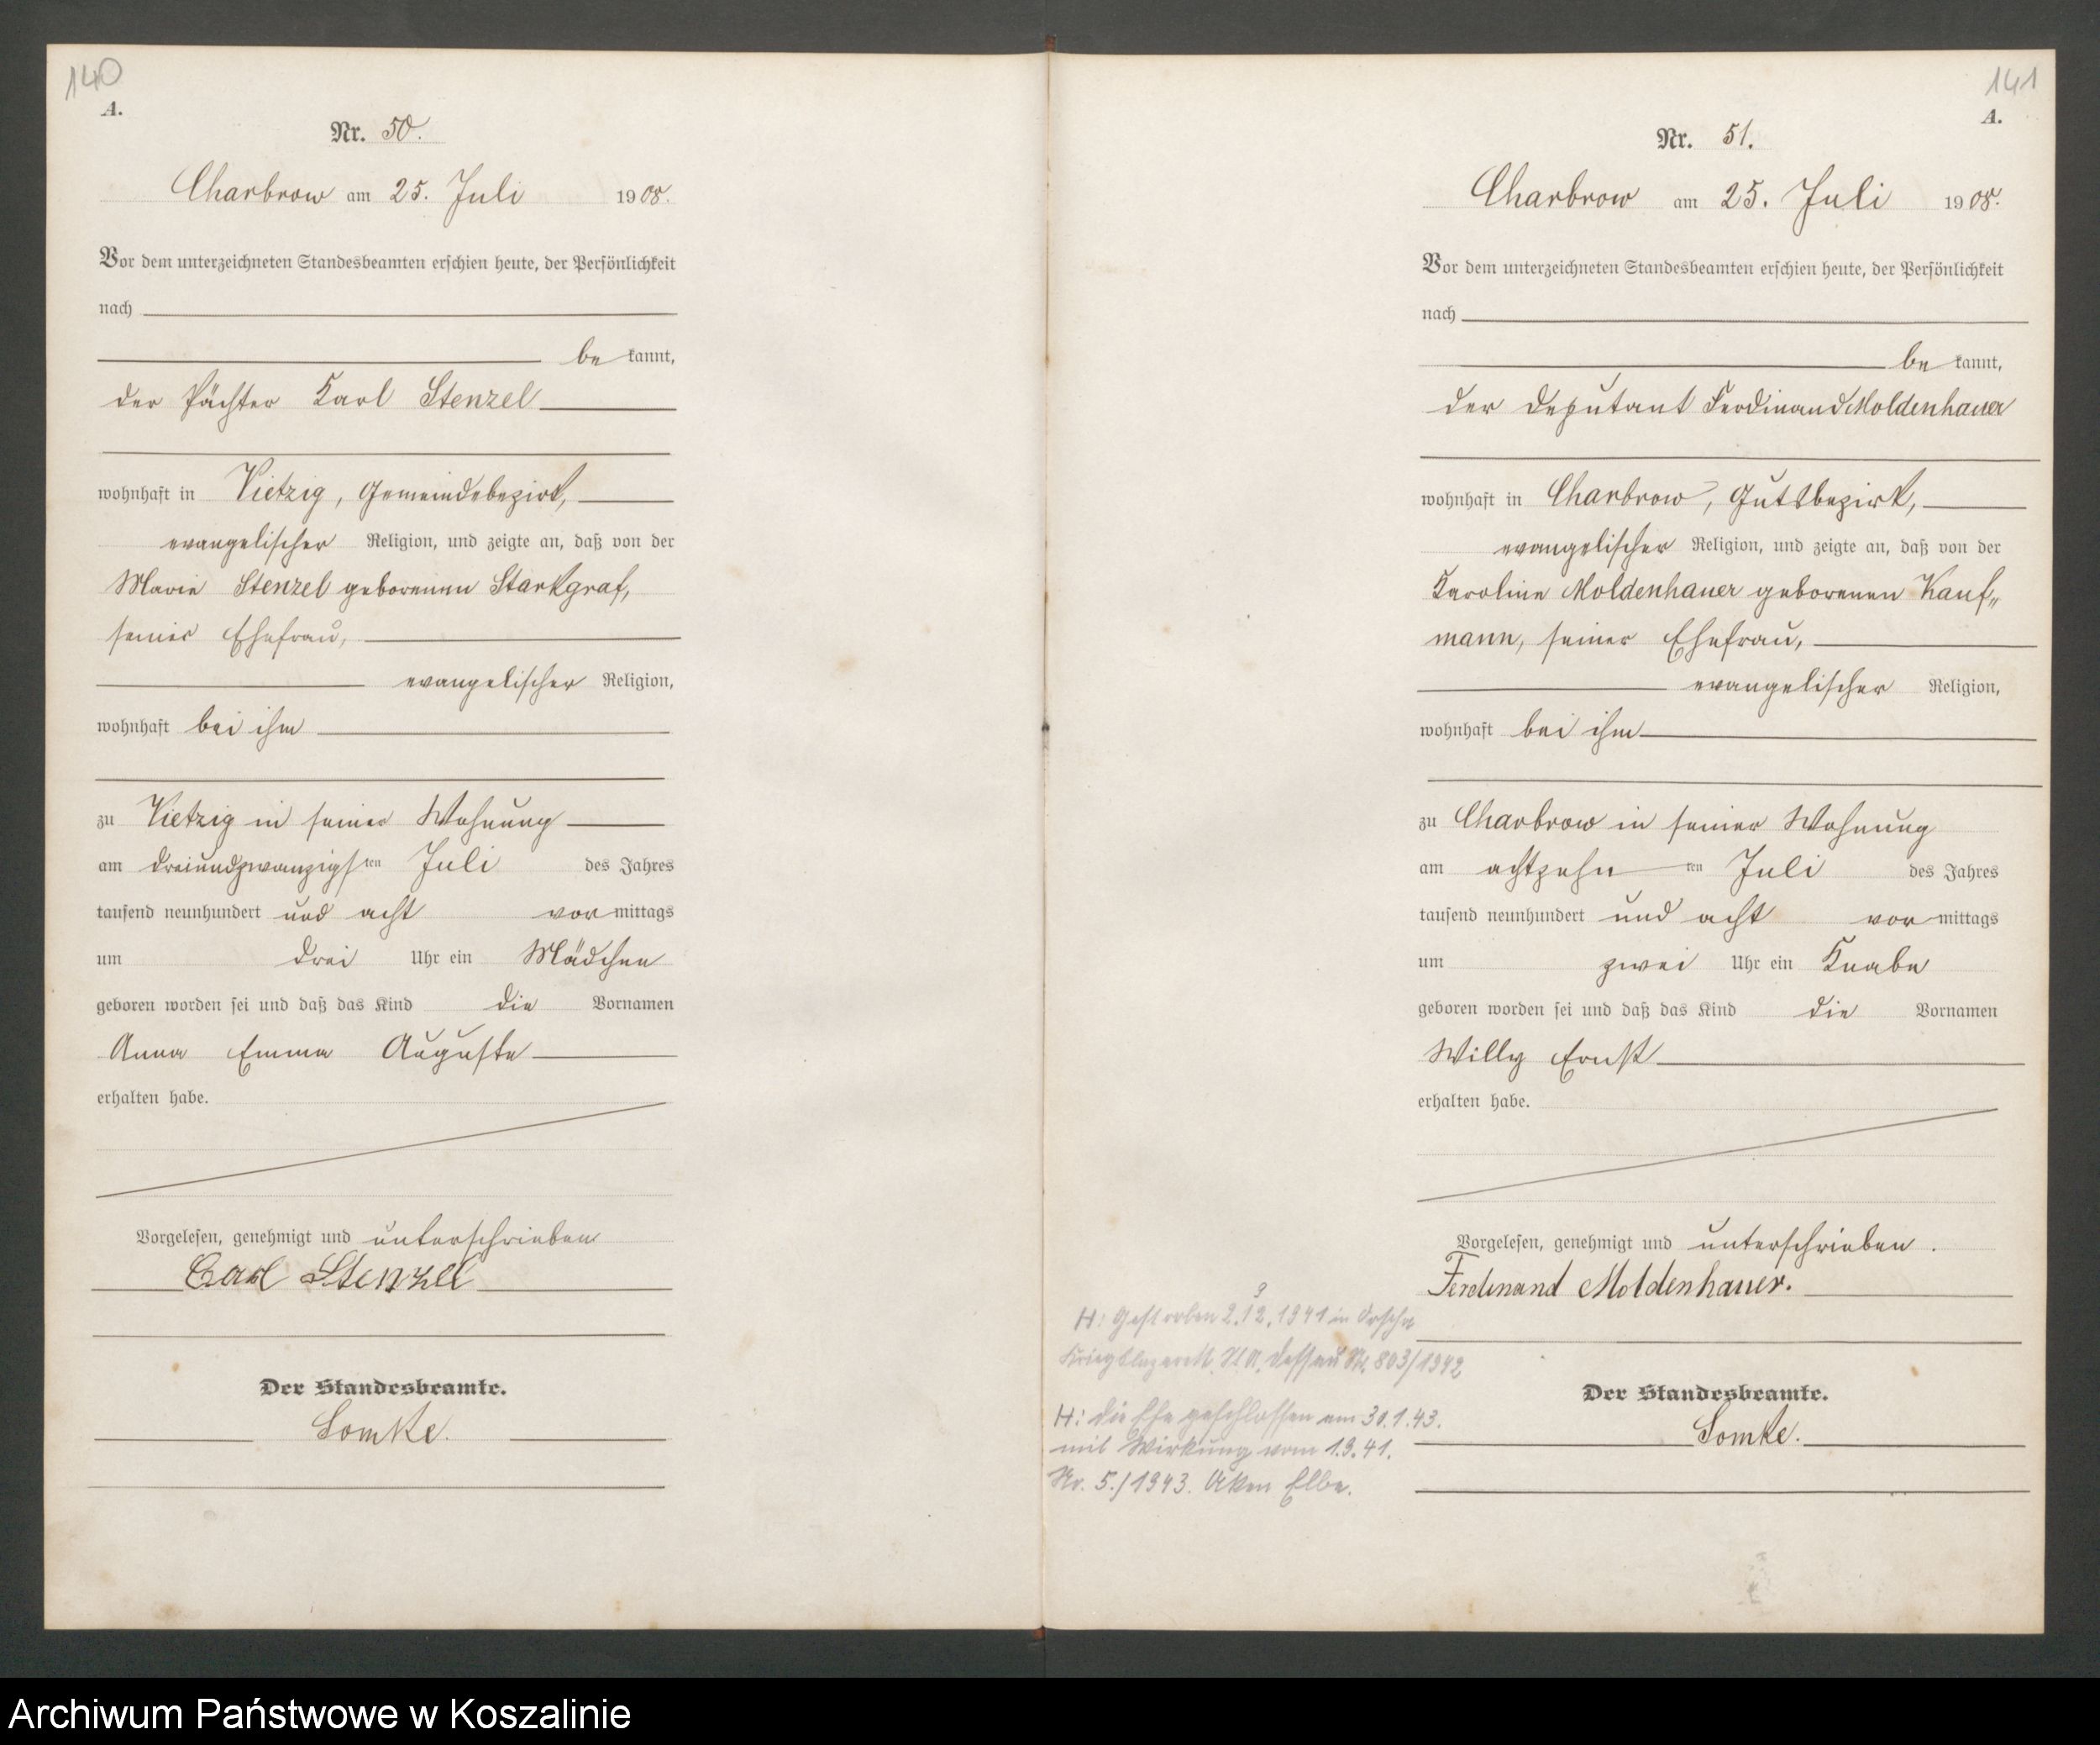 140
A.
Nr. 50.
Charbrow am 25. Juli 1908.
Vor dem unterzeichneten Standesbeamten erschien heute, der Persönlichkeit
nach
be kannt,
der Pächter Karl Stenzel
wohnhaft in Vietzig, Gemeindebezirk,
evangelischer Religion, und zeigte an, daß von der
Marie Stenzel geborenen Starkgraf,
seiner Ehefrau,
evangelischer Religion,
wohnhaft bei ihm
zu Vietzig in seiner Wohnung
am dreiundzwanzigsten Juli des Jahres
tausend neunhundert und acht vormittags
um drei Uhr ein Mädchen
geboren worden sei und daß das Kind die Vornamen
Anna Emma Auguste
erhalten habe.
Vorgelesen, genehmigt und unterschrieben
Carl Stenzel
Der Standesbeamte.
Lomke.
141
A.
Nr. 51.
Charbrow am 25. Juli 1908.
Vor dem unterzeichneten Standesbeamten erschien heute, der Persönlichkeit
nach
be kannt,
der Deputant Ferdinand Moldenhauer
wohnhaft in Charbrow, Gutsbezirk,
evangelischer Religion, und zeigte an, daß von der
Karoline Moldenhauer geborenen Kauf„
mann, seiner Ehefrau,
evangelischer Religion,
wohnhaft bei ihm
zu Charbrow in seiner Wohnung
am achtzehn ten Juli des Jahres
tausend neunhundert und acht vormittags
um zwei Uhr ein Knabe
geboren worden sei und daß das Kind die Vornamen
Willy Ernst
erhalten habe.
Vorgelesen, genehmigt und unterschrieben.
Ferdinand Moldenhauer.
Der Standesbeamte.
Lomke.
H: Gestorben 2.12.1941 in Orscha
Kriegslazarett. St.A. Dessau Nr. 803/1942
H: die Ehe geschlossen am 30.1.43.
mit Wirkung vom 1.9.41.
Nr. 5./1943. Aken Elbe.
Archiwum Państwowe w Koszalinie